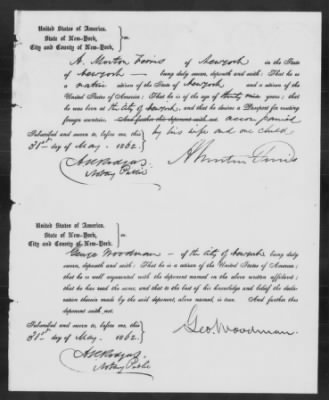 United States of America.
State of New-York,
City and County of New-York. } ss.
A. Morton Ferris of New york in the State
of New york being duly sworn, deposeth and saith: That he is
a native citizen of the State of New york and a citizen of the
United States of America: That he is of the age of thirty nine years; that
he was born at the City of New york, and that he desires a Passport for visiting
foreign countries. And further this deponent with not. accompanied
Subscribed and sworn to, before me, this } by his wife and one child
31st day of May 1862.
A Morton Ferris
Notary Public
United States of America.
State of New-York,
City and County of New-York. } ss.
George Woodman of the City of New york being duly
sworn, deposeth and saith: That he is a citizen of the United States of America;
that he is well acquainted with the deponent named in the above written affidavit;
that he has read the same, and that to the best of his knowledge and belief the decla-
ration therein made by the said deponent, above named, is true. And further this
deponent saith not.
Subscribed and sworn to, before me, this }
31st day of May 1862.
Geo. Woodman.
Notary Public